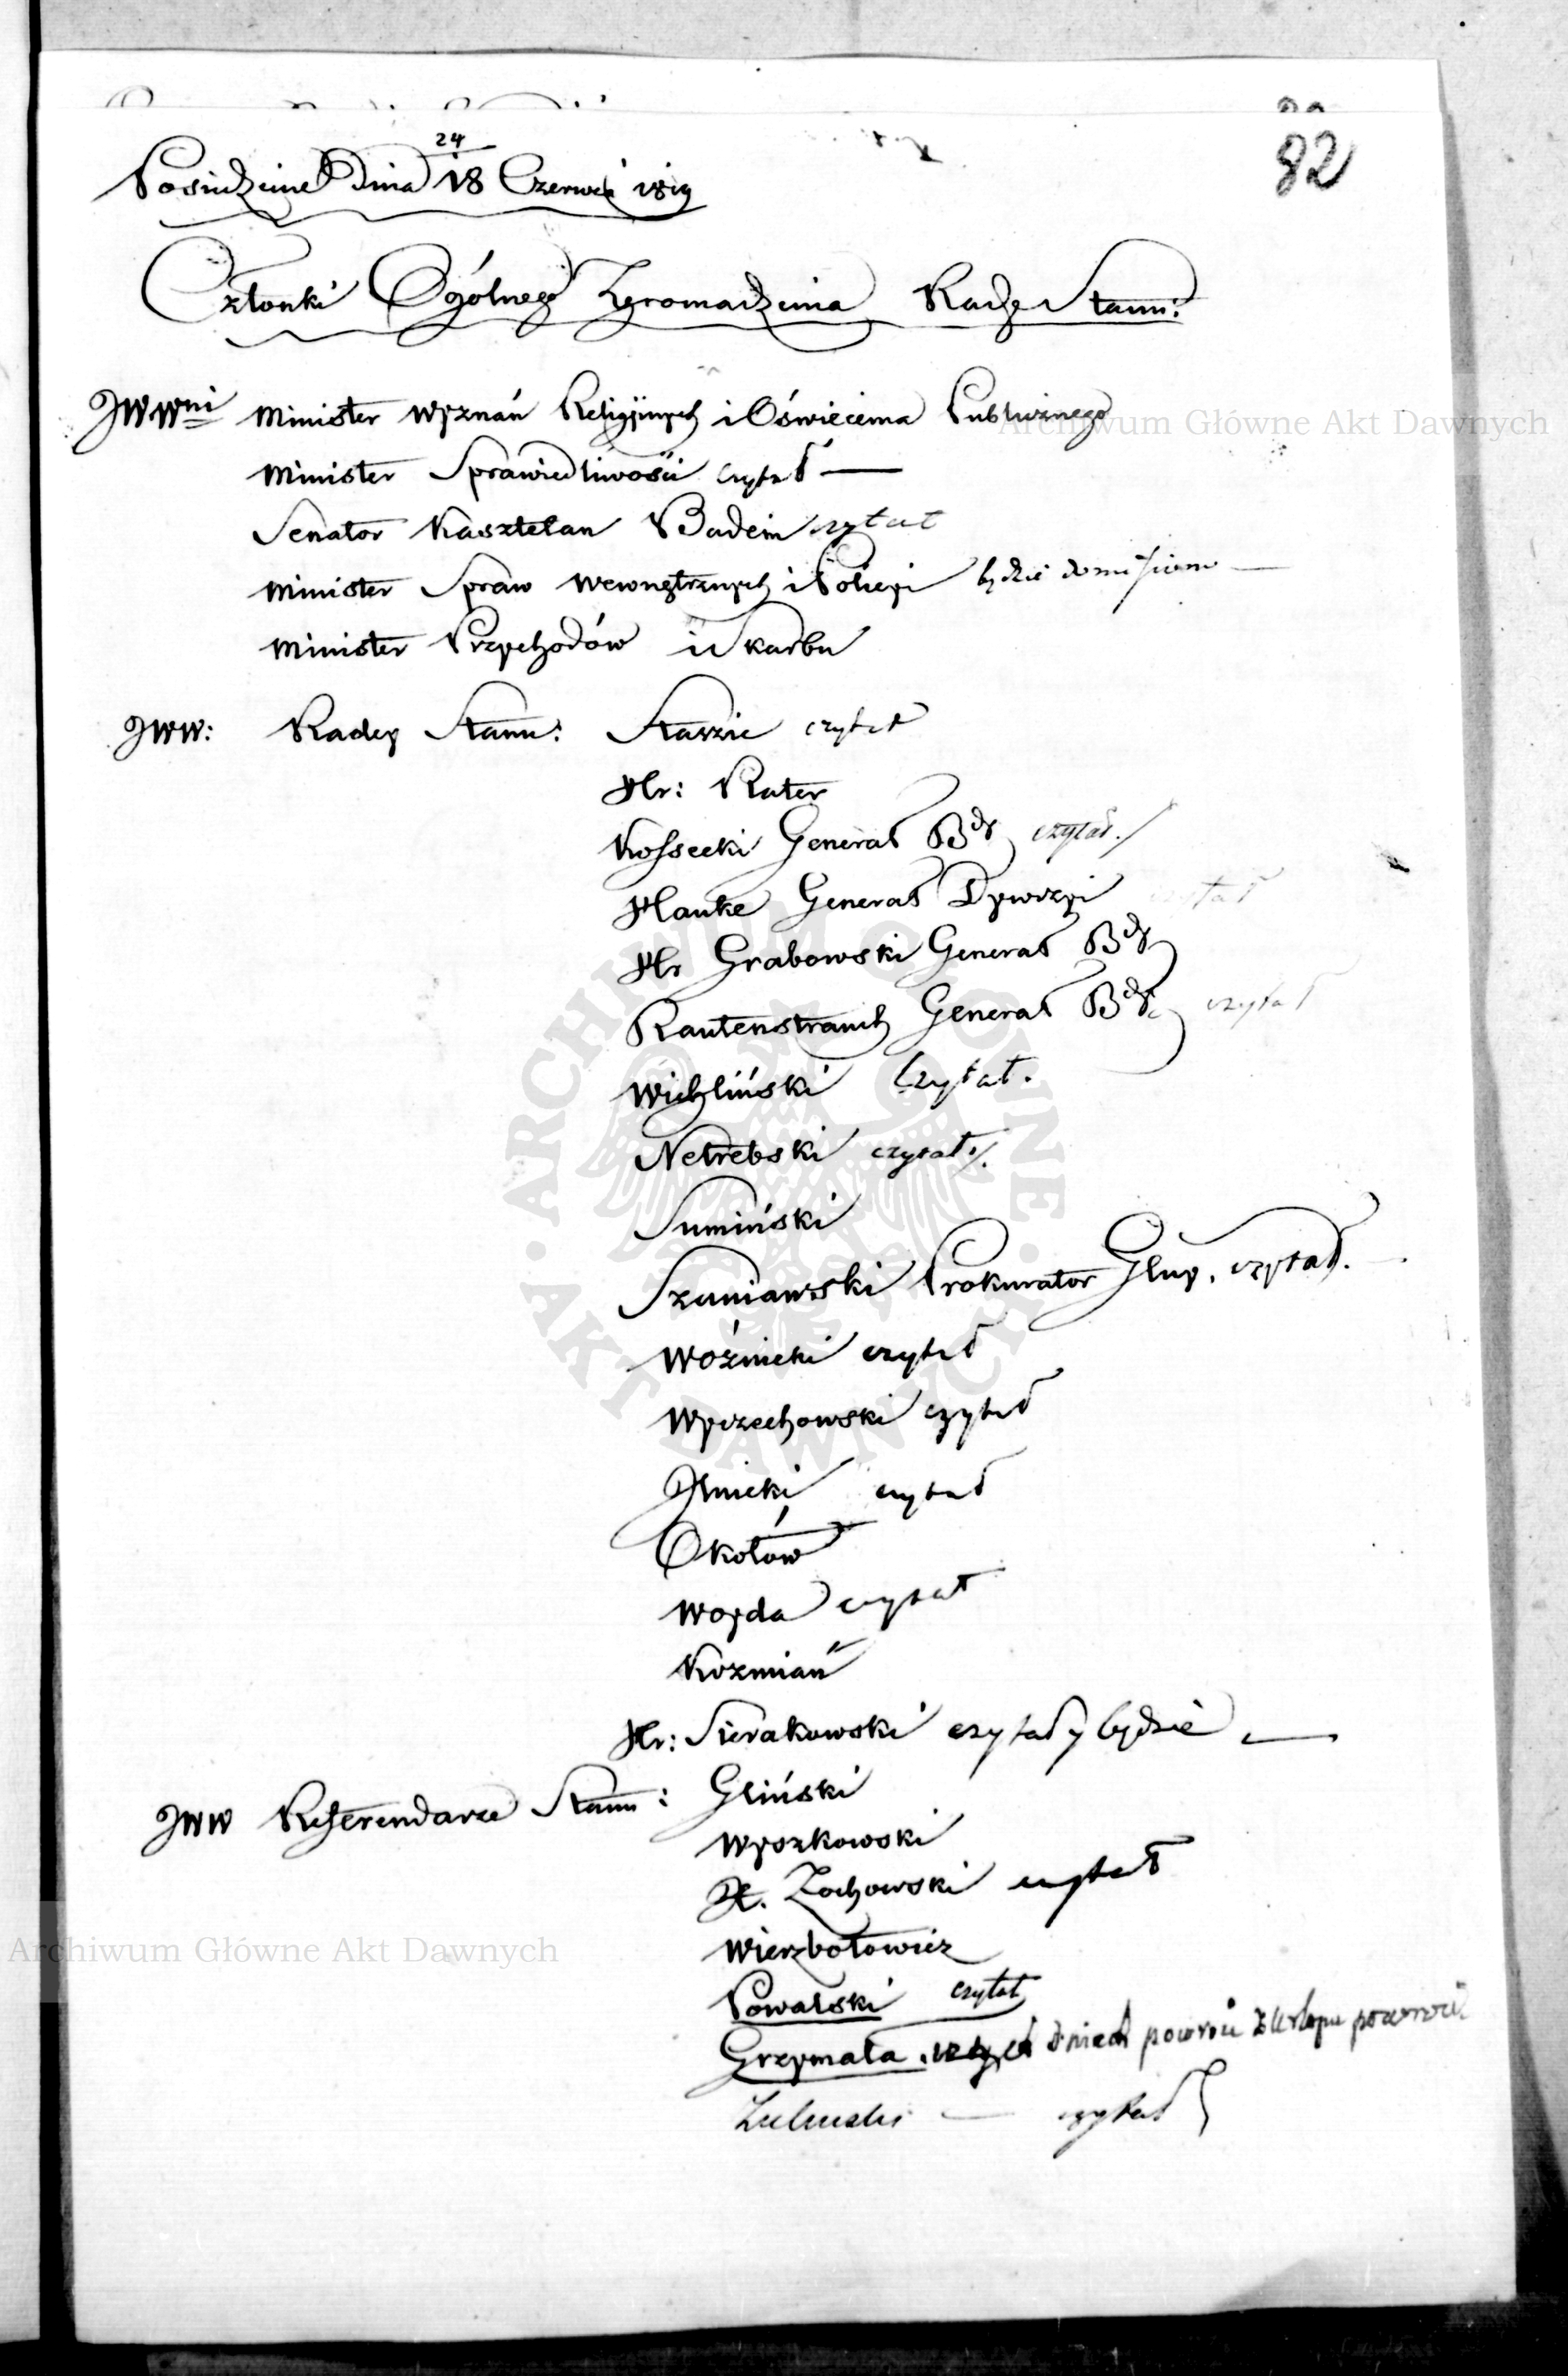 82
24
Posiedzenie Dnia 18 Czerwca 1819
Członki Ogólnego Zgromadzenia Rady Stanu:
JWWni Minister Wyznań Religijnych i Oświecenia Publicznego
Archiwum Główne Akt Dawnych
Minister Sprawiedliwości czytał
Senator Kasztelan Badeni czytał
Minister Spraw Wewnętrznych i Policyi będzie
Minister Przychodów i Skarbu
JWW: Radcy Stanu: Staszic czytał
Hr: Plater
Kossecki Generał Bdy czytał
Hauke Generał Dywizyi czytał
Hr Grabowski Generał Bdy
Rautenstrauch Generał Bdy czytał
Wichliński Czytał.
Netrebski czytał
Sumiński
Szaniawski Prokurator Glny. czytał.
Woźnicki czytał
Wyczechowski czytał
Jlnicki czytał
Okołów
Woyda czytał
Kozmian
Hr: Sierakowski czytał y będzie
JWW Referendarze Stanu: Gliński
Wyszkowski
X. Zochowski czytał
Wierzbołowicz
Archiwum Główne Akt Dawnych
Powalski czytał
Grzymała dniach powróci z Urlopu powróci
czytał
ARCHIWUM GŁÓWNE AKT DAWNYCH